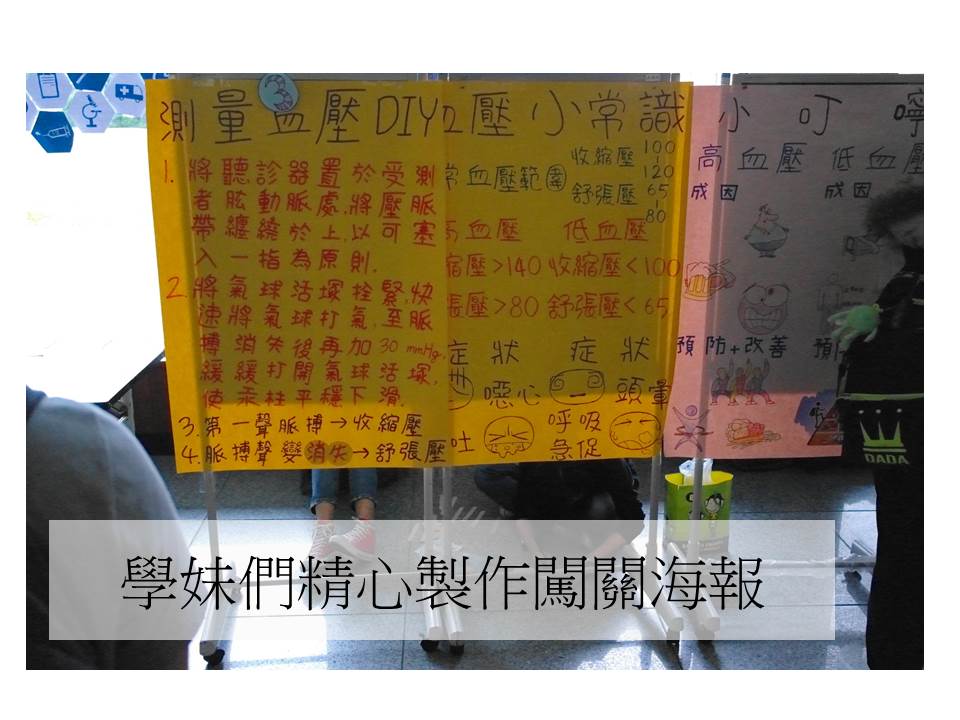 測量血壓DIY
1.將聽診器置於受測
者肱動脈處,將壓脈
帶纏繞於上,以可塞
入一指為原則.
2.將氣球活塚拴緊,快
速將氣球打氣,至脈
搏消失後再加30mmHg,
緩緩打開氣球活塚,
使汞柱平穩下滑.
3.第一聲脈搏→收縮壓
4.脈搏聲變消失→舒張壓
壓小常識
常血壓範圍
收縮壓100-120
舒張壓65-80
血壓 低血壓
縮壓>140 收縮壓<100
張壓>80 舒張壓<65
症狀 症狀
噁心 頭暈
吐 呼吸
急促
小叮嚀
高血壓 低血壓
成因 成因
預防+改善 預
DADA
學妹們精心製作闖關海報